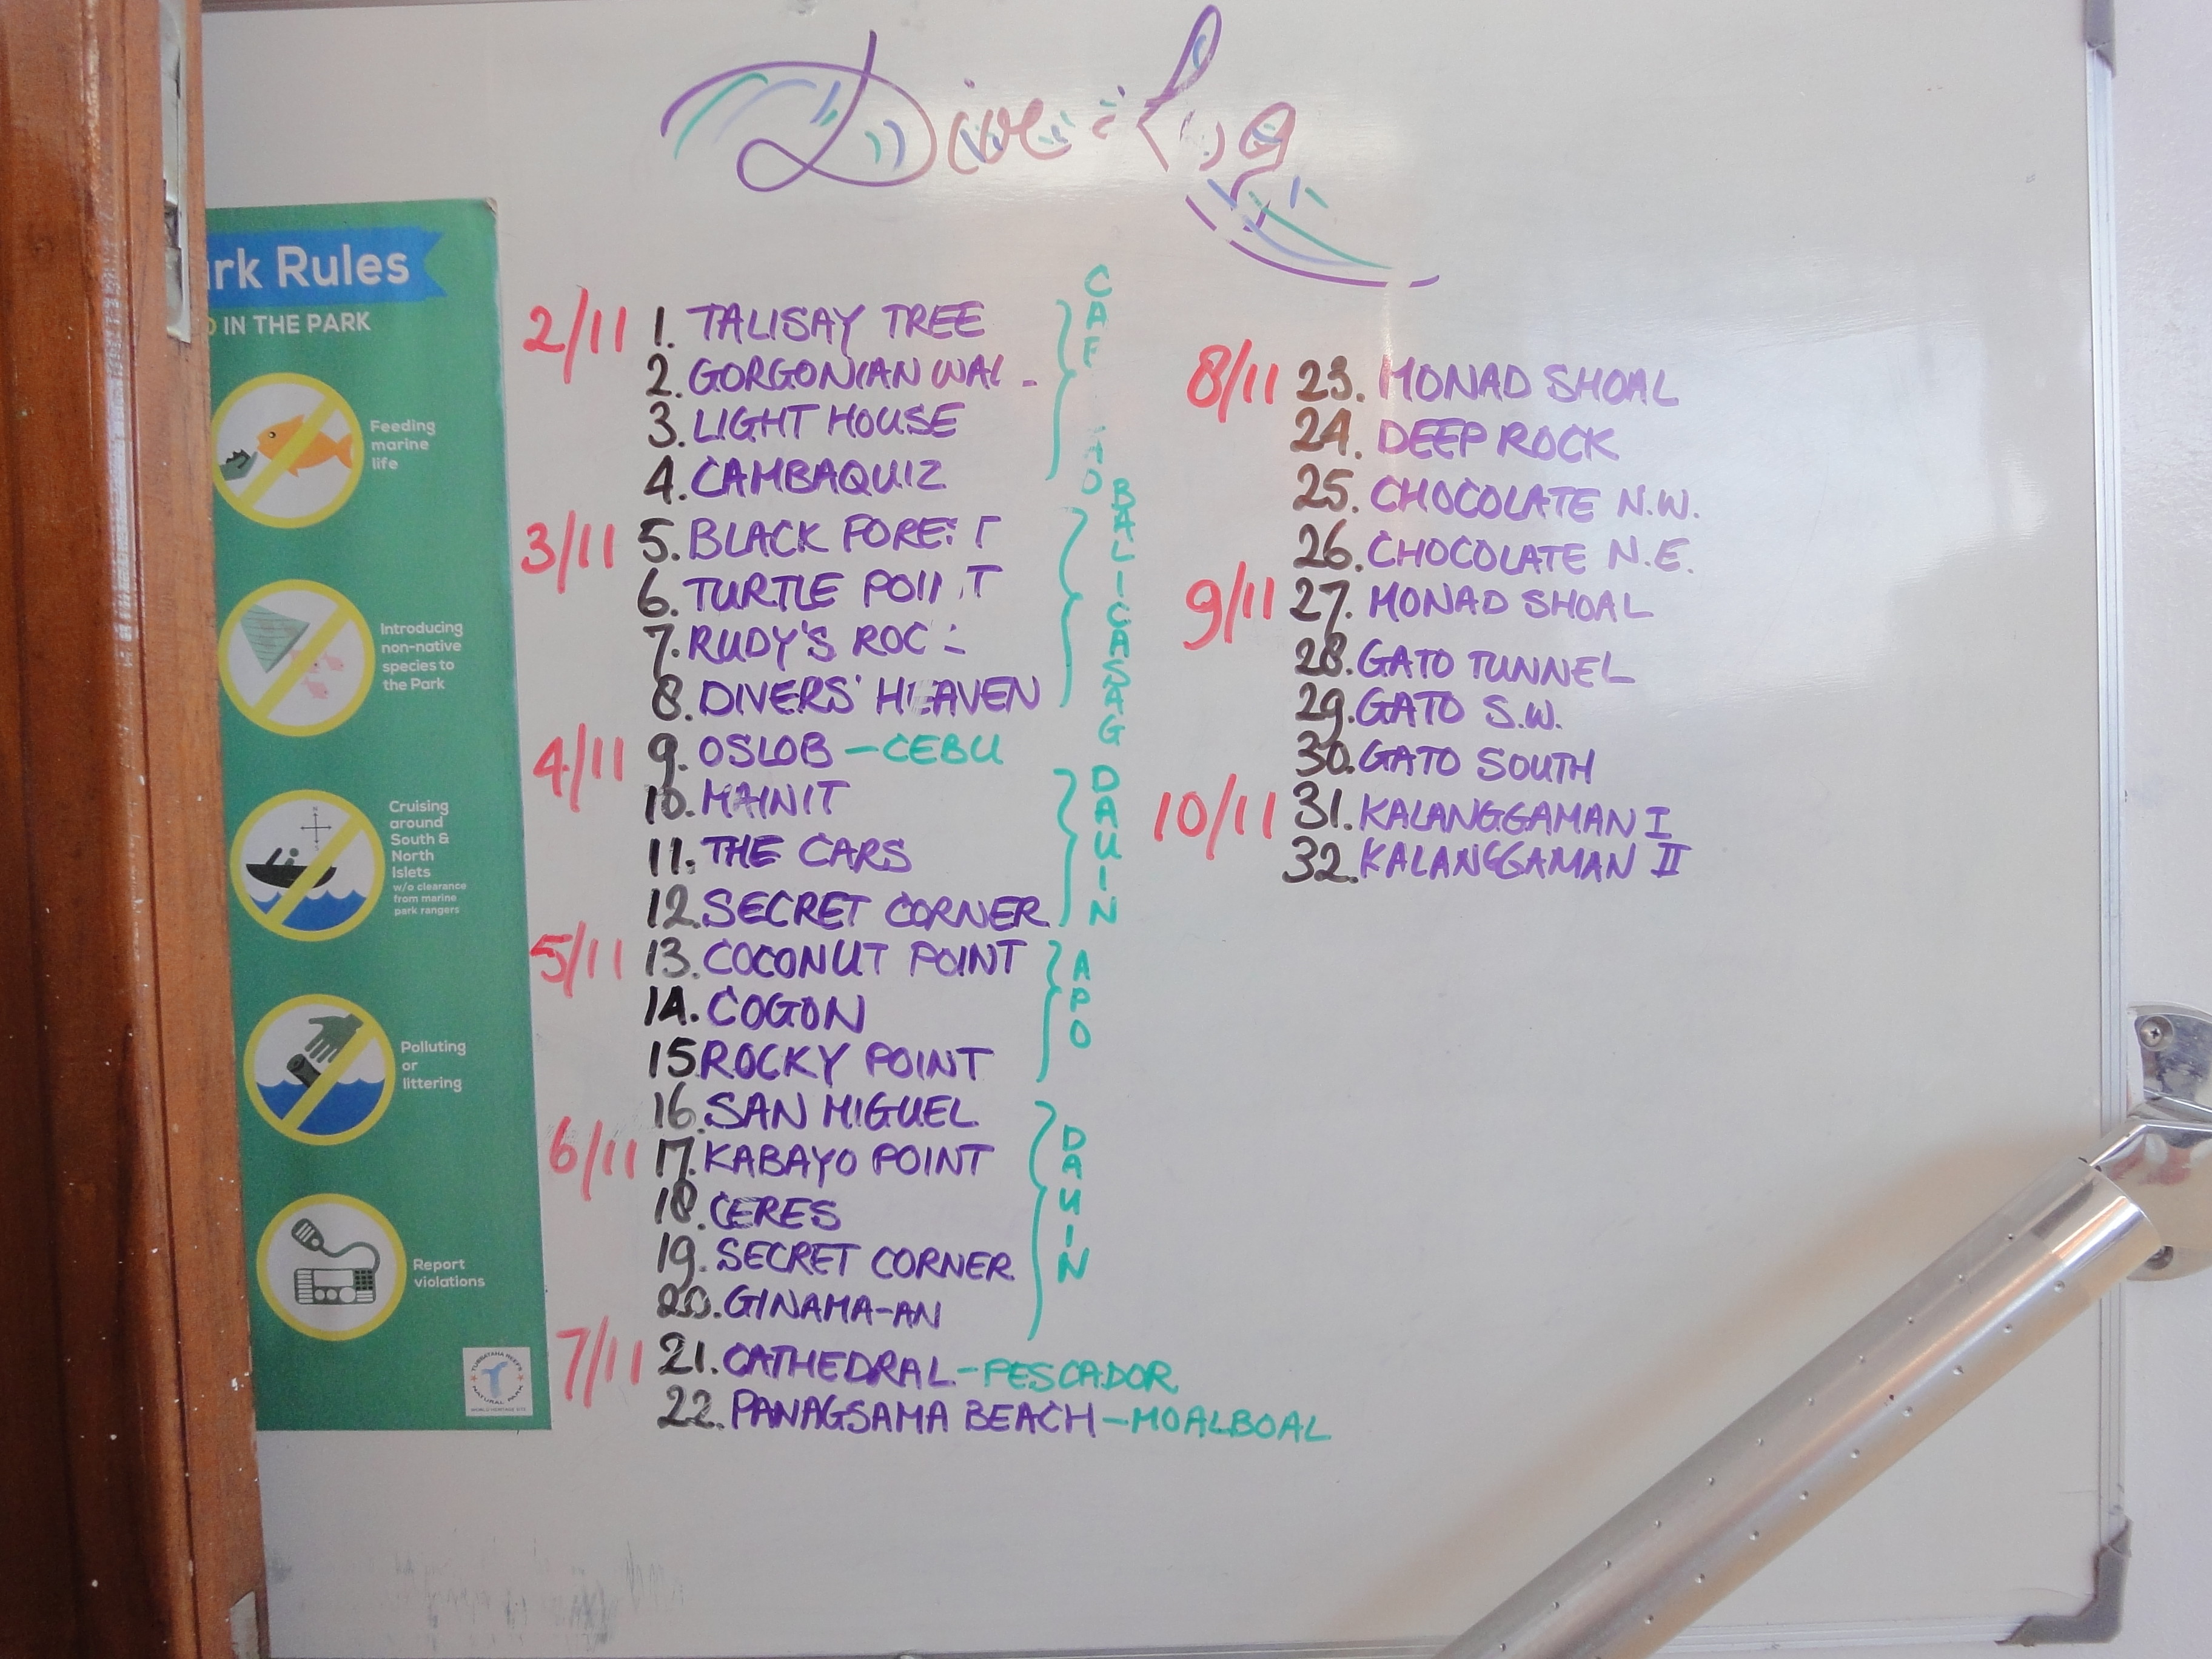 Dive Log
rk Rules
IN THE PARK
Feeding
marine
life
Introducing
non-native
species to
the Park
Cruising
around
South &
North
Islets
w/o clearance
from marine
park rangers
Polluting
or
littering
Report
violations
TUBBATAHA REEFS
NATURAL PARK
WORLD HERITAGE SITE
2/11 1. TALISAY TREE
2. GORGONIAN
3. LIGHT HOUSE
4. CAMBAQUIZ
3/11 5. BLACK
6. TURTLE
7. RUDY'S
8. DIVERS' HEAVEN
BALICASAG
4/11 9. OSLOB - CEBU
10. MAINIT
11. THE CARS
12. SECRET CORNER
DAUIN
5/11 13. COCONUT POINT
14. COGON
15 ROCKY POINT
APO
16. SAN MIGUEL
6/11 17. KABAYO POINT
18. CERES
19. SECRET CORNER
20. GINAMA-AN
DAUIN
7/11 21. CATHEDRAL - PESCADOR
22. PANAGSAMA BEACH - MOALBOAL
8/11 23. MONAD SHOAL
24. DEEP ROCK
25. CHOCOLATE N.W.
26. CHOCOLATE N.E.
9/11 27. MONAD SHOAL
28. GATO TUNNEL
29. GATO S.W.
30. GATO SOUTH
10/11 31. KALANGGAMAN I
32. KALANGGAMAN II